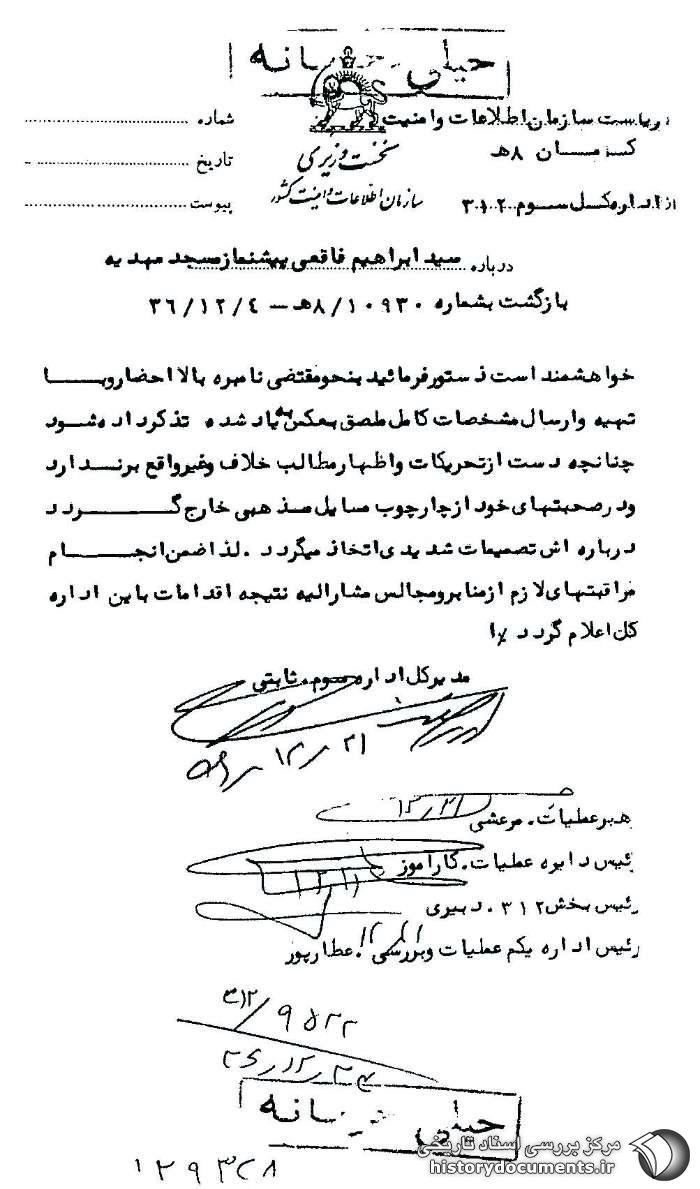 خیلی محرمانه
ریاست سازمان اطلاعات و امنیت
کرمان ۸هـ
از اداره کل سوم ۳۱۲
نخست وزیری
سازمان اطلاعات و امنیت کشور
شماره
تاریخ
پیوست
درباره سید ابراهیم قاقعی پیشنماز مسجد مهدیه
بازگشت بشماره ۸/۱۰۹۳۰هـ - ۳۶/۱۲/۴
خواهشمند است دستور فرمائید بنحو مقتضی نامبره بالا احضار و با
تهیه و ارسال مشخصات کامل ملصق بعکس به یاد شده تذکر داده شود
چنانچه دست از تحریکات و اظهار مطالب خلاف و غیر واقع برندارد
و در صحبتهای خود از چارچوب مسایل مذهبی خارج گردد
درباره اش تصمیمات شدیدی اتخاذ میگردد . لذا ضمن انجام
مراقبتهای لازم از منابر و مجالس مشارالیه نتیجه اقدامات باین اداره
کل اعلام گردد
مدیر کل اداره سوم . ثابتی
۱۲/۲۱
رهبر عملیات . مرعشی
رئیس دایره عملیات . کارآموز
رئیس بخش ۳۱۲ . دبیری
رئیس اداره یکم عملیات و بررسی . عطارپور
۳۱۲/۹۵۲۲
۳۶/۱۲/۲۳
خیلی محرمانه
مرکز بررسی اسناد تاریخی
historydocuments.ir